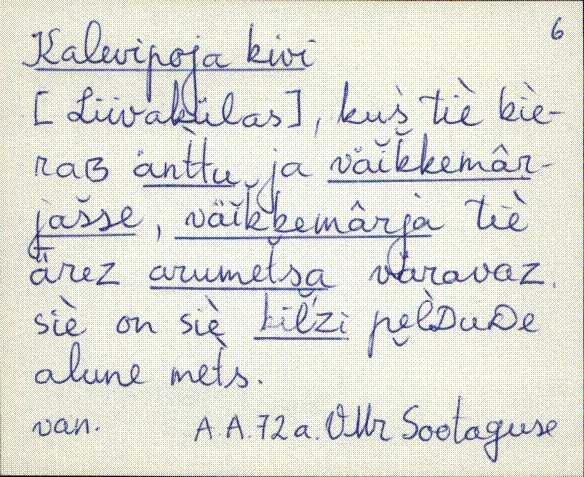 6
Kalevipoja kivi
[Liivakülas], kuš tiè kìe-
raʙ ànt́tu ja väĭkkemâr-
jašse, väĭkkemârja tiè
ärez arumet́sa väravaz.
siè on siè kil̆zi pel̀ᴅuᴅe
alune met̀s.
van. A.A. 72 a. VMr Sootaguse